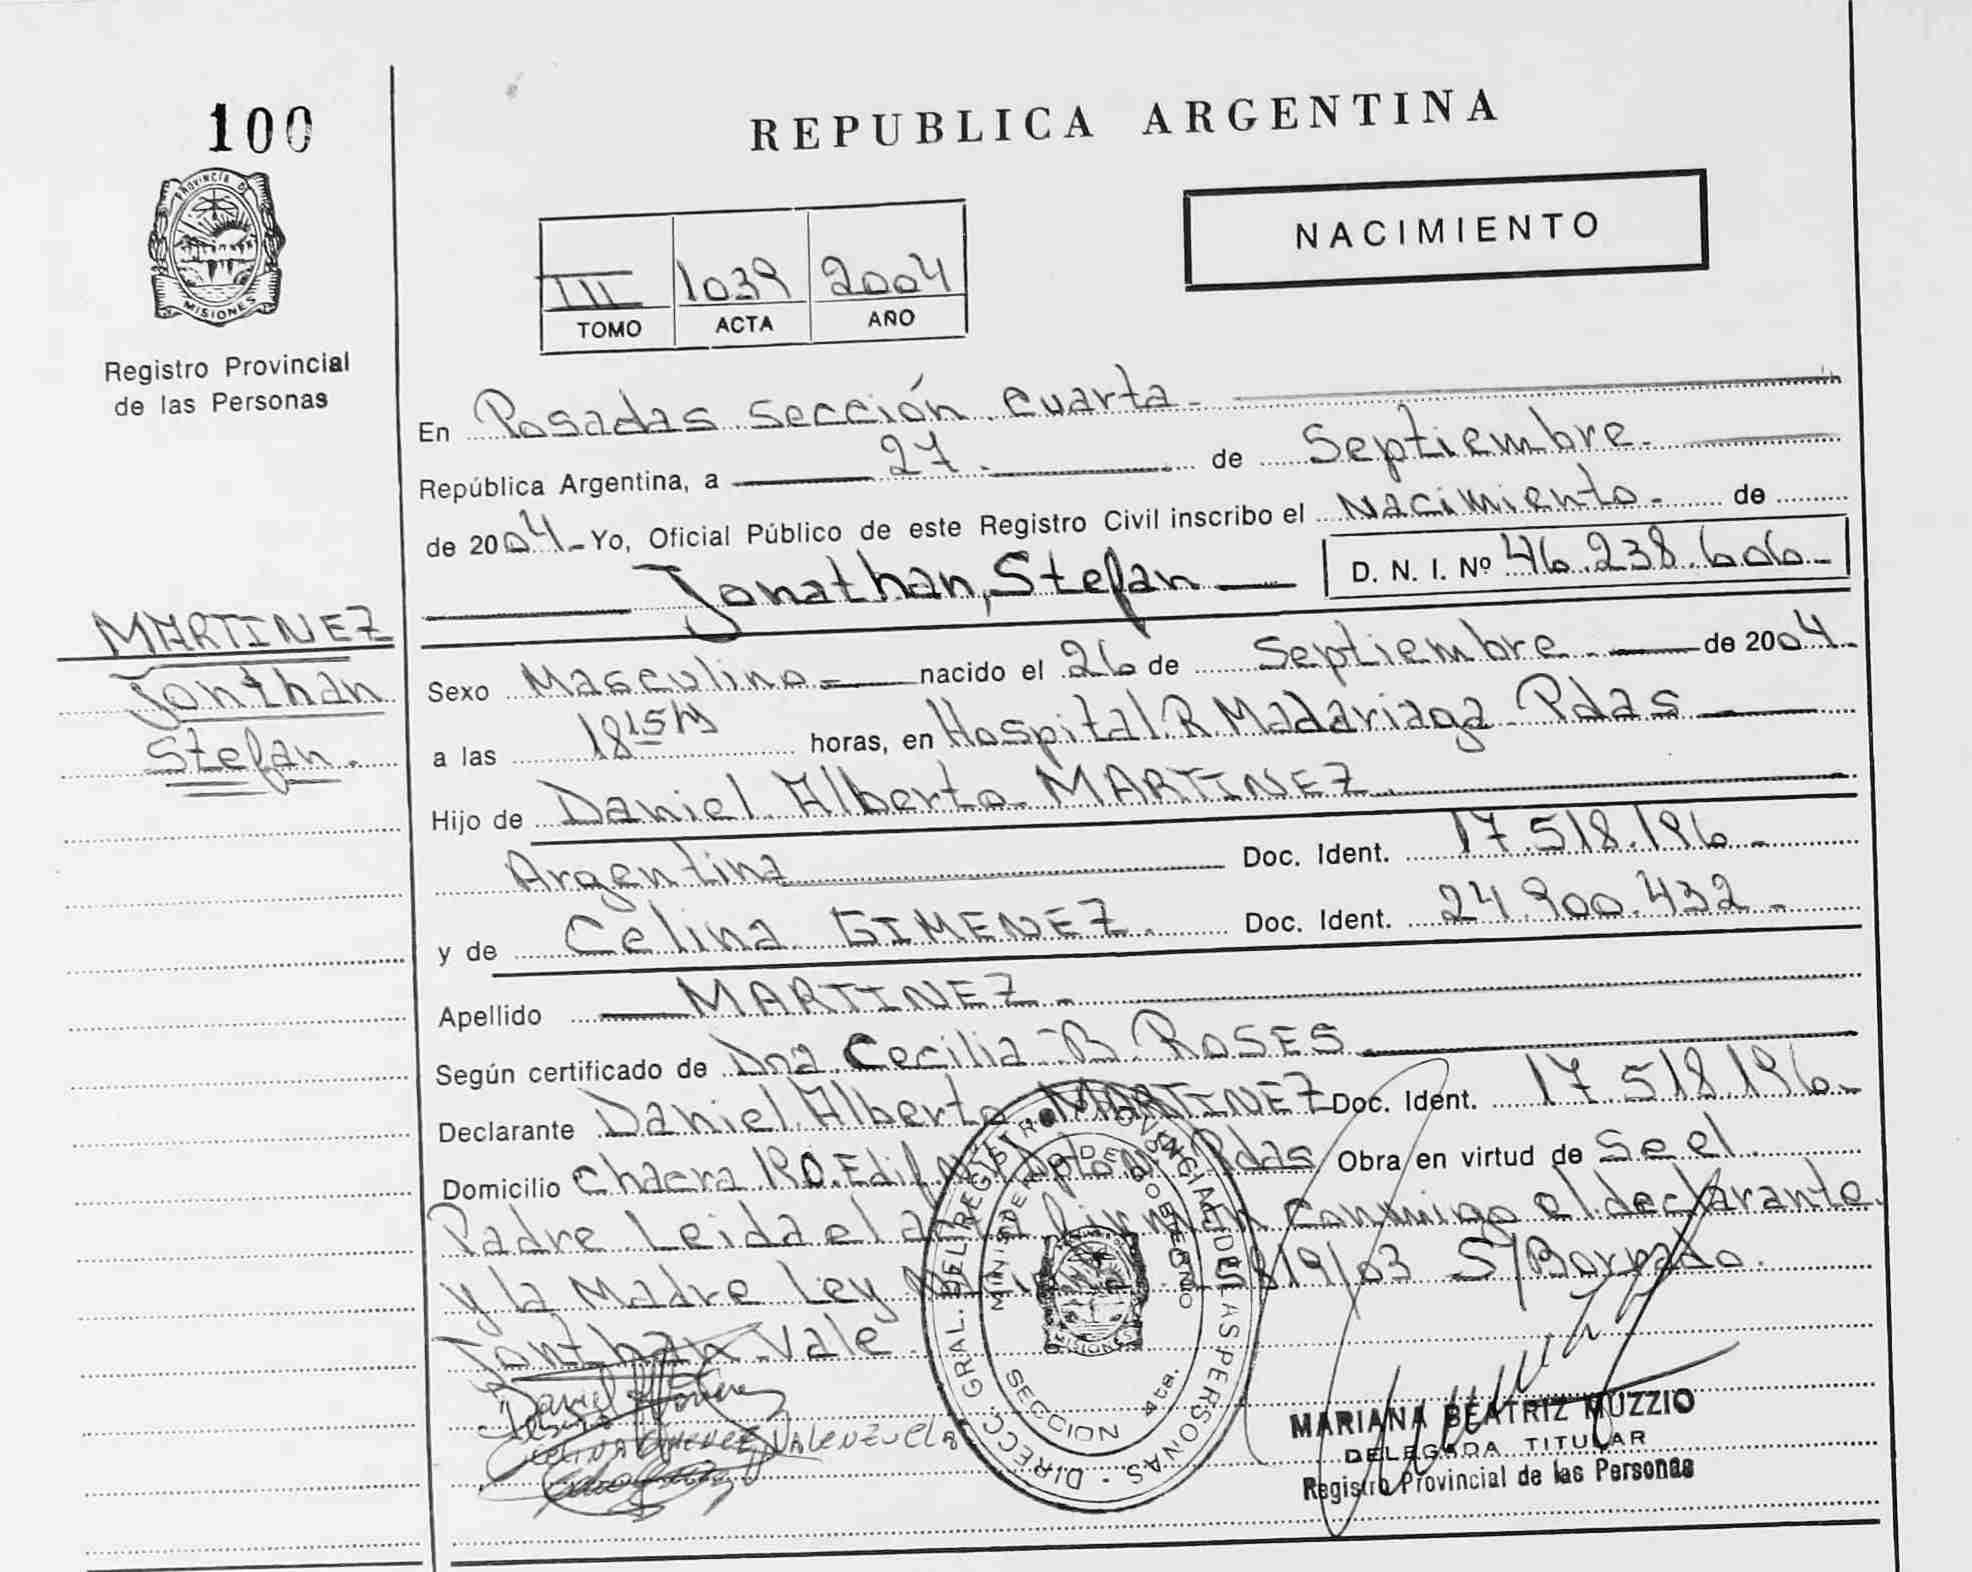 100
REPUBLICA ARGENTINA
PROVINCIA DE
MISIONES
NACIMIENTO
III 1039 2004
TOMO ACTA AÑO
Registro Provincial
de las Personas
En Posadas sección cuarta
República Argentina, a 27 de Septiembre
de 2004 Yo, Oficial Público de este Registro Civil inscribo el Nacimiento de
Jonathan, Stefan D. N. I. Nº 46.238.606
MARTINEZ
Jonthan
Stefan.
Sexo Masculino nacido el 26 de Septiembre de 2004
a las 18 15 horas, en Hospital R Madariaga Pdas
Hijo de Daniel Alberto MARTINEZ
Argentina Doc. Ident. 17.518.196
y de Celina GIMENEZ Doc. Ident. 24.900.432
Apellido MARTINEZ
Según certificado de Dna Cecilia B ROSES
Declarante Daniel Alberto MARTINEZ Doc. Ident. 17.518.196
Domicilio Chacra Edif. Pdas Obra en virtud de Se el
Padre Leida el conmigo el declarante
y la Madre Ley 19/03 S/Borrado.
Jonthan Vale
CELINA GIMENEZ VALENZUELA
DIRECC. GRAL. DEL REGISTRO PROVINCIAL DE LAS PERSONAS
MINISTERIO DE GOBIERNO
MISIONES
SECCION 4ta.
MARIANA BEATRIZ MUZZIO
DELEGADA TITULAR
Registro Provincial de las Personas